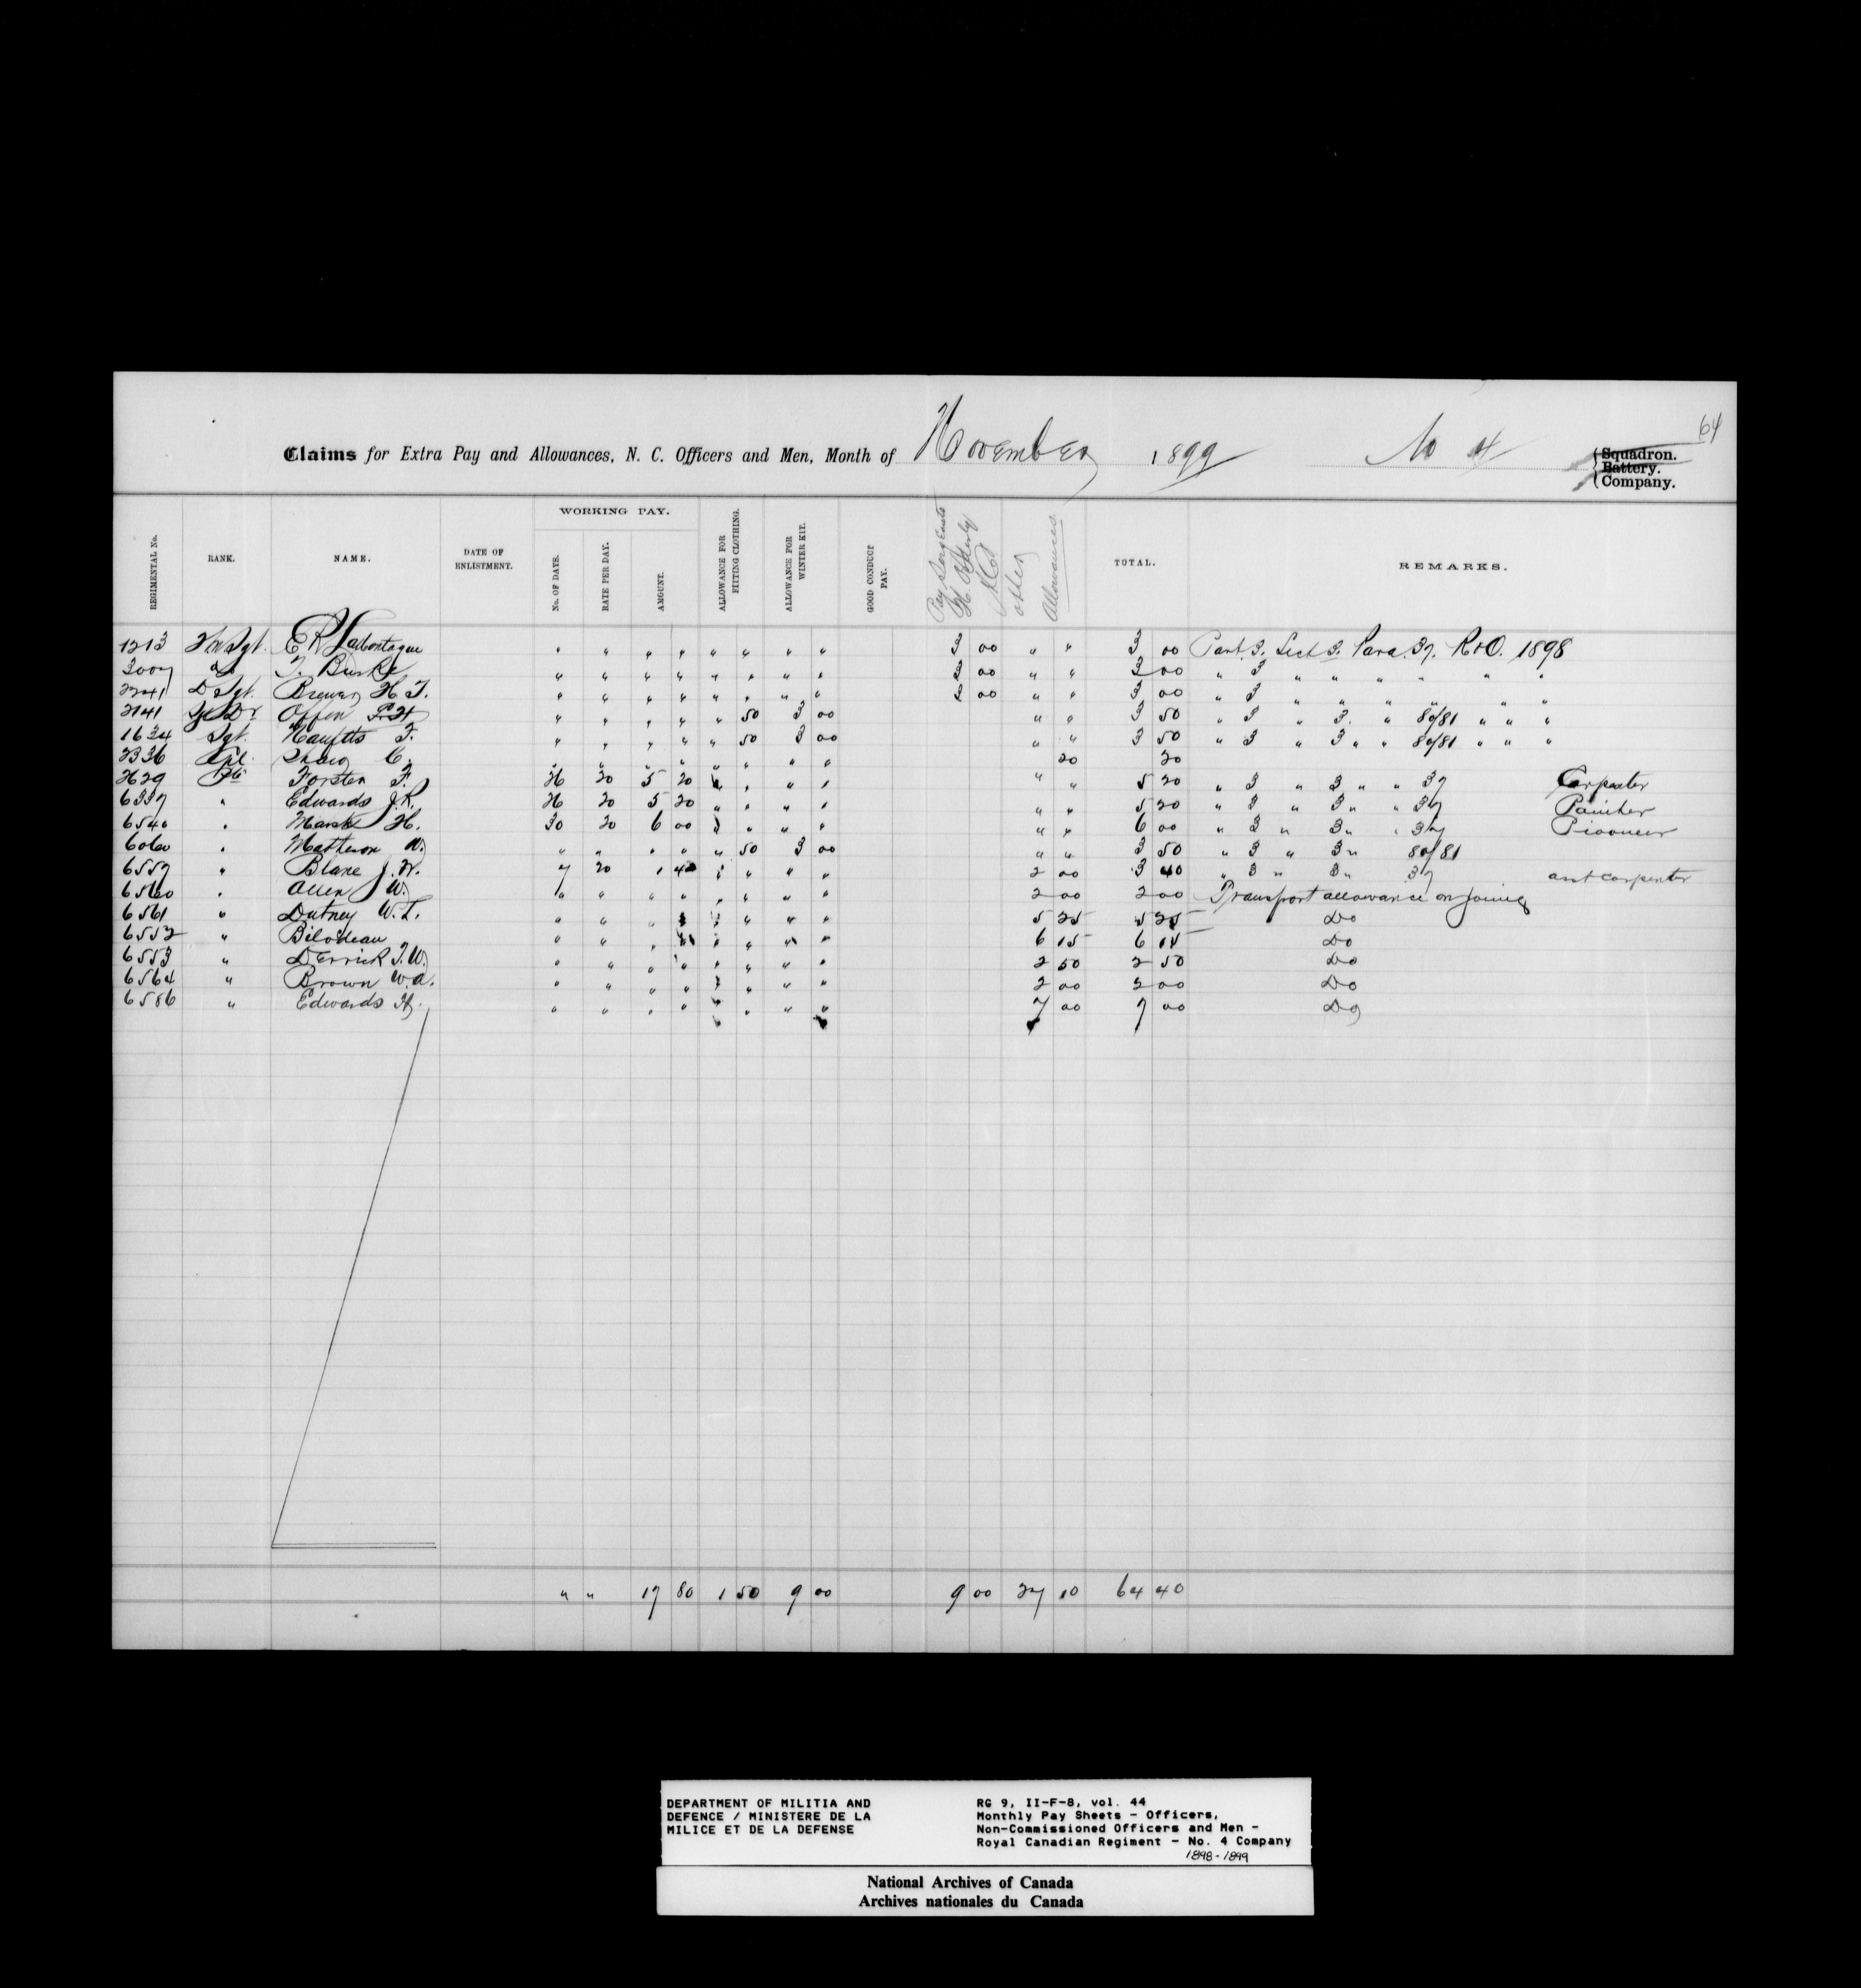 64
Claims for Extra Pay and Allowances, N. C. Officers and Men, Month of November 1899 No 4 { Squadron. Battery. Company.
REGIMENTAL No. RANK. NAME. DATE OF ENLISTMENT. WORKING PAY. No. OF DAYS. RATE PER DAY. AMOUNT. ALLOWANCE FOR FITTING CLOTHING. ALLOWANCE FOR WINTER KIT. GOOD CONDUCT PAY. Pay Sergeants other Allowances TOTAL. REMARKS.
1213 Sgt. E R Labontague " " " " " " " " 3 00 " " 3 00 Part. 3. Sect 3. Para. 37. R & O. 1898
3007 T. Burke " " " " " " " " 3 00 " " 3 00 " 3 " " " " " "
2241 Brewer H T. " " " " " " " " 3 00 " " 3 00 " 3 " " " " " "
2141 Offen F. H " " " " " 50 3 00 " " 3 50 " 3 " 3. " 80/81 " " "
1634 Sgt. T. " " " " " 50 3 00 " " 3 50 " 3 " 3 " " 80/81 " " "
2336 Cpl. C. " " " " " " " " 20 20
2629 Pte Forster F. 26 20 5 20 " " " " " " 5 20 " 3 " 3 " " 37 Carpenter
6337 " Edwards J. R. 26 20 5 20 " " " " " " 5 20 " 3 " 3 " " 37 Painter
6540 " H. 30 20 6 00 " " " " " " 6 00 " 3 " 3 " " 37 Pioneer
6060 " Matheson W. " " " " " 50 3 00 " " 3 50 " 3 " 3 " 80/81
6557 " Blane J. W. 7 20 1 40 " " " " 2 00 3 40 " 3 " 3 " 37 asst carpenter
6560 " Allen W. " " " " " " " " 2 00 2 00 Transport allowance on joining
6561 " Dutney W. T. " " " " " " " 5 25 5 25 Do
6552 " Bilodeau " " " " " " " 6 15 6 15 Do
6553 " Derrick T. W. " " " " " " " " 2 50 2 50 Do
6564 " Brown W. A. " " " " " " " 2 00 2 00 Do
6586 " Edwards H. " " " " " " " " 7 00 7 00 Do
" " 17 80 1 50 9 00 9 00 27 10 64 40
DEPARTMENT OF MILITIA AND
DEFENCE / MINISTERE DE LA
MILICE ET DE LA DEFENSE
RG 9, II-F-8, vol. 44
Monthly Pay Sheets - Officers,
Non-Commissioned Officers and Men -
Royal Canadian Regiment - No. 4 Company
1898-1899
National Archives of Canada
Archives nationales du Canada